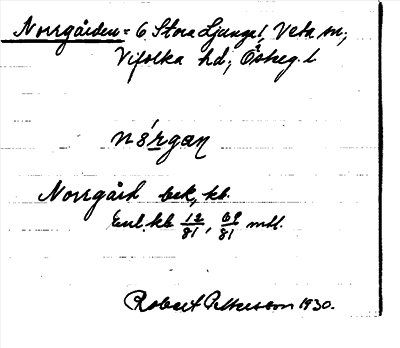 Norrgården = 6 Stora Ljunga, Veta sn;
Vifolka hd; Östeg. l
nórgan
Norrgård bek, kb.
Enl. kb 12/81, 69/81 mtl.
Robert Pettersson 1930.